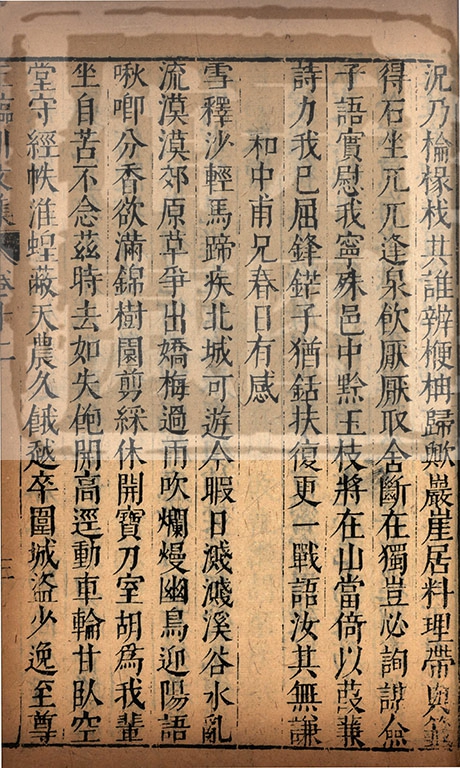 況乃棆椽栈共誰辨梗柟歸歟巖崖居料理帶與簪
得石坐兀兀逢泉飲厭厭取舍斷在獨豈必詢謀僉
子語實慰我寧殊邑中黔玉枝將在山當倚以葭蒹
詩力我已屈鋒鋩子猶銛扶復更一戰語汝其無謙
和中甫兄春日有感
雪釋沙輕馬蹄疾北城可遊今暇日濺濺溪谷水亂
流漠漠郊原草爭出嬌梅過雨吹爛熳幽鳥迎陽語
啾唧分香欲滿錦樹園剪綵休開寶刀室胡爲我輩
坐自苦不念茲時去如失飽開高逕動車輪甘臥空
堂守經帙淮蝗蔽天農久餓越卒圍城盜少逸至尊